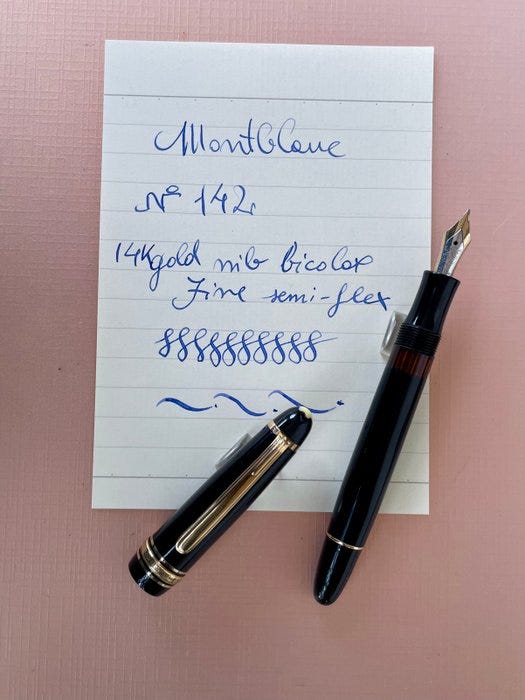 Montblanc
Nº 142
14K gold nib bicolor
Fine semi-flex